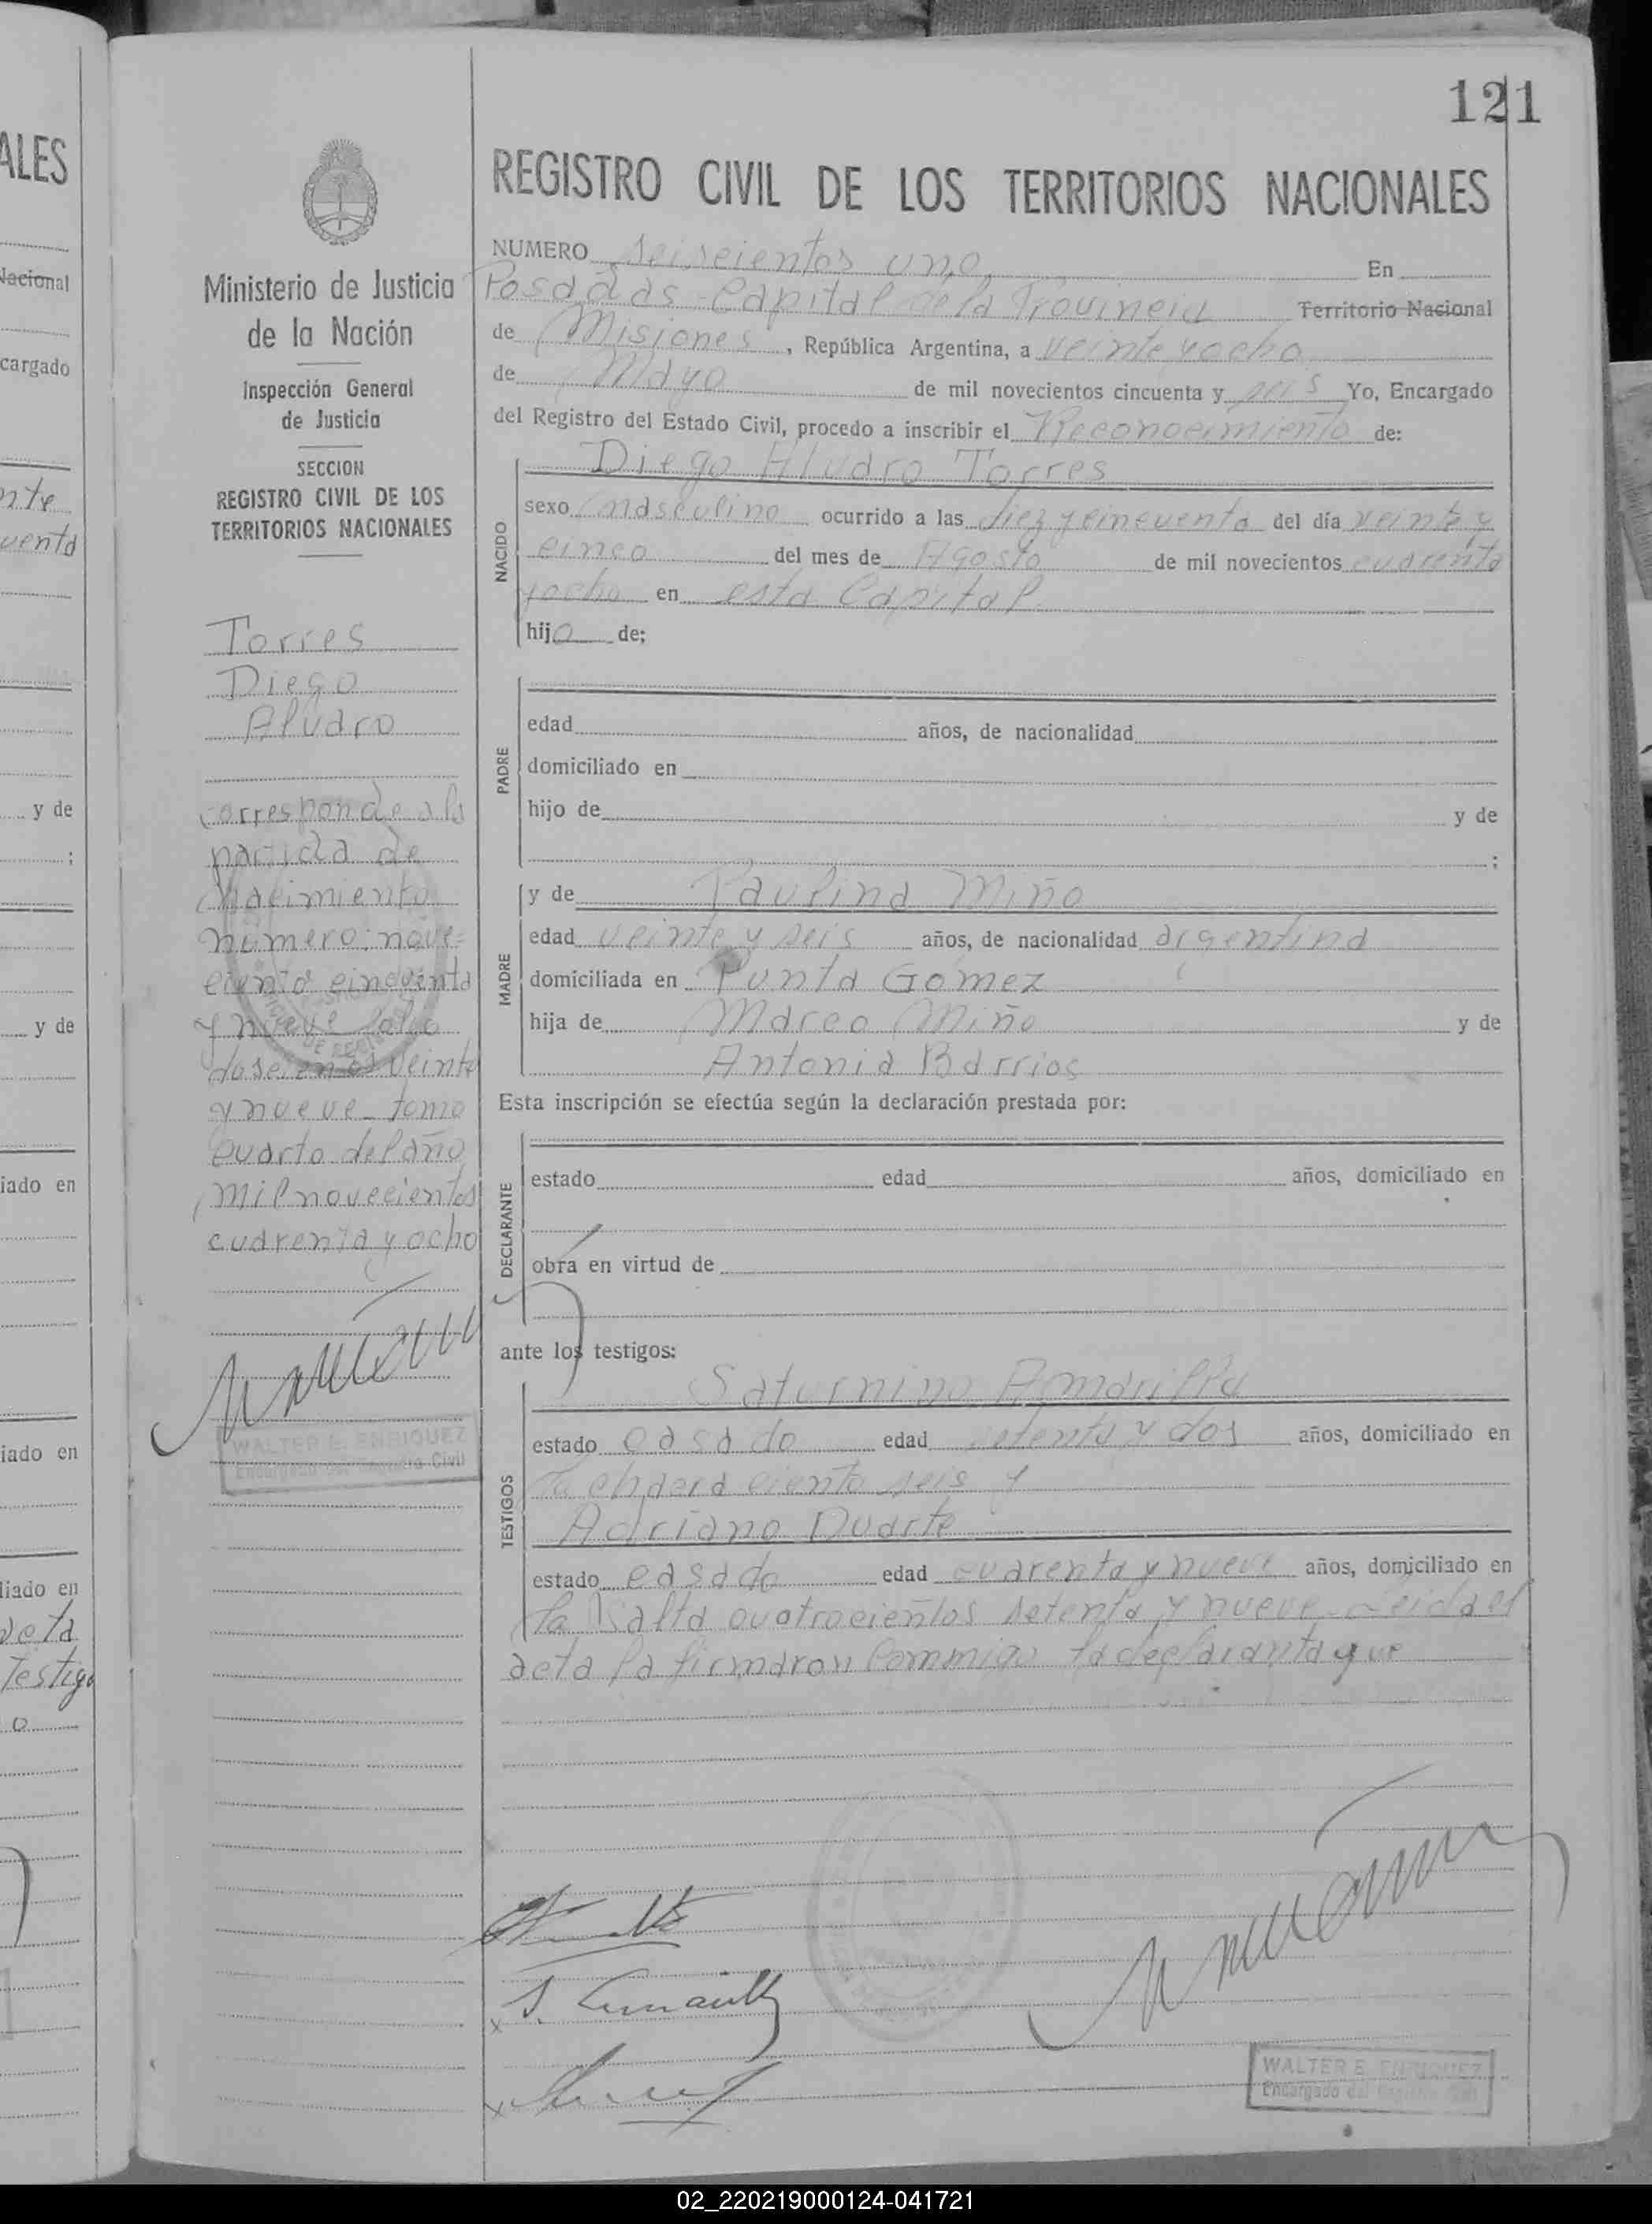 121
ALES
Nacional
cargado
nte
uenta
y de
;
y de
iado en
iado en
liado en
Testigo
o
Ministerio de Justicia
de la Nación
Inspección General
de Justicia
SECCION
REGISTRO CIVIL DE LOS
TERRITORIOS NACIONALES
Torres
Diego
Alvaro
corresponde a la
partida de
Nacimiento
número: nove-
ciento cincuenta
y nueve folio
doscientos veinte
y nueve tomo
cuarto del año
mil novecientos
cuarenta y ocho
WALTER E. ENRIQUEZ
Encargado del Registro Civil
REGISTRO CIVIL DE LOS TERRITORIOS NACIONALES
NUMERO seiscientos uno En
Posadas Capital de la Provincia Territorio Nacional
de Misiones, República Argentina, a veinte y ocho
de Mayo de mil novecientos cincuenta y seis Yo, Encargado
del Registro del Estado Civil, procedo a inscribir el Reconocimiento de:
Diego Alvaro Torres
NACIDO
sexo masculino ocurrido a las diez y cincuenta del día veinte y
cinco del mes de Agosto de mil novecientos cuarenta
y ocho en esta Capital
hijo de;
PADRE
edad años, de nacionalidad
domiciliado en
hijo de y de
;
MADRE
y de Paulina Miño
edad veinte y seis años, de nacionalidad argentina
domiciliada en Punta Gomez
hija de Marco Miño y de
Antonia Barrios
Esta inscripción se efectúa según la declaración prestada por:
DECLARANTE
estado edad años, domiciliado en
obra en virtud de
ante los testigos:
TESTIGOS
Saturnino Amarilla
estado casado edad setenta y dos años, domiciliado en
la chacra ciento seis y
Adriano Duarte
estado casado edad cuarenta y nueve años, domiciliado en
la Salta cuatrocientos setenta y nueve Leida el
acta la firmaron conmigo la declaranta y
WALTER E. ENRIQUEZ
Encargado del Registro Civil
02_220219000124-041721